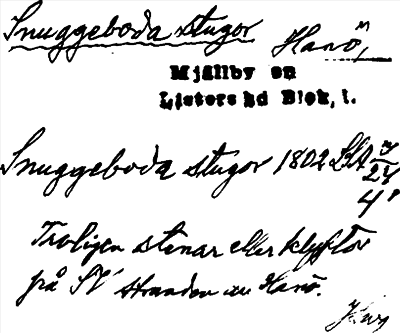 Snuggeboda stugor Hanö,
Mjällby sn
Listers hd Blek. l.
Snuggeboda stugor 1802
4'
Troligen stenar eller klyftor
på SV stranden av Hanö.